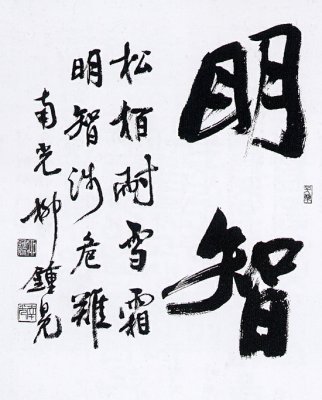 明智
松栢耐雪霜
明智涉危難
南光柳鍾晃